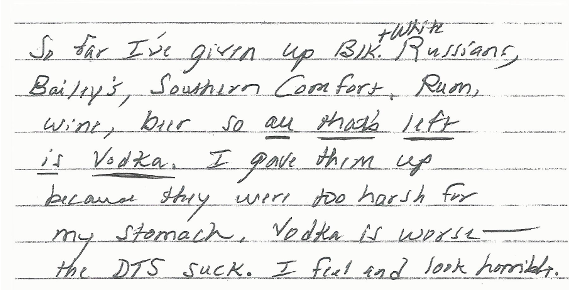 So far I've given up Blk. + White Russians,
Bailey's, Southern Comfort, Rum,
wine, beer so all that's left
is Vodka. I gave them up
because they were too harsh for
my stomach. Vodka is worse—
the DTS suck. I feel and look horrible.